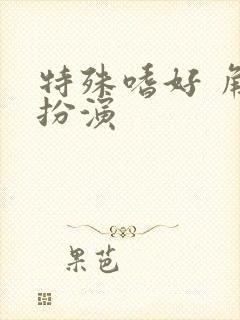 特殊嗜好 角
扮演
果芭